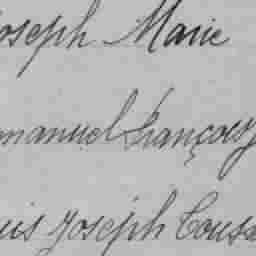 Joseph Marie
manuel François
uis Joseph Cousa